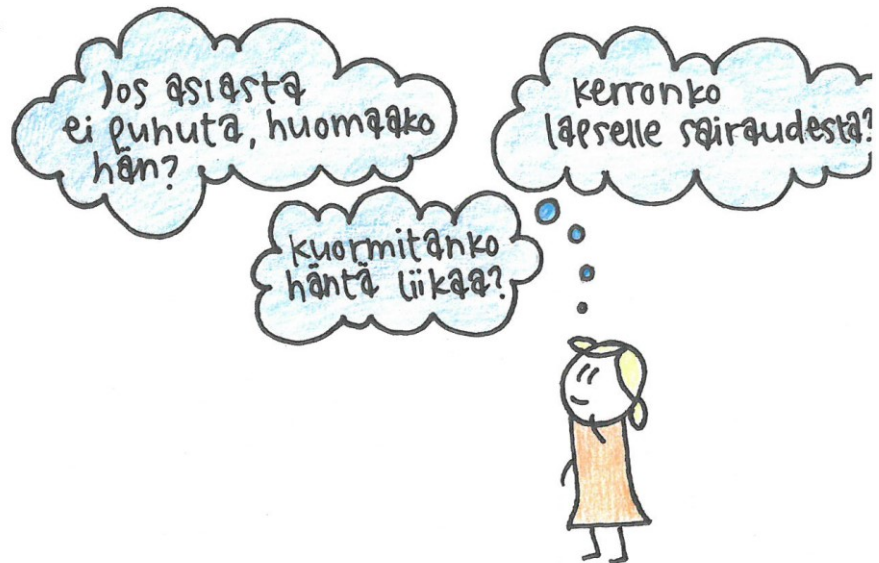 Jos asiasta
ei puhuta, huomaako
hän?
kerronko
lapselle sairaudesta?
kuormitanko
häntä liikaa?